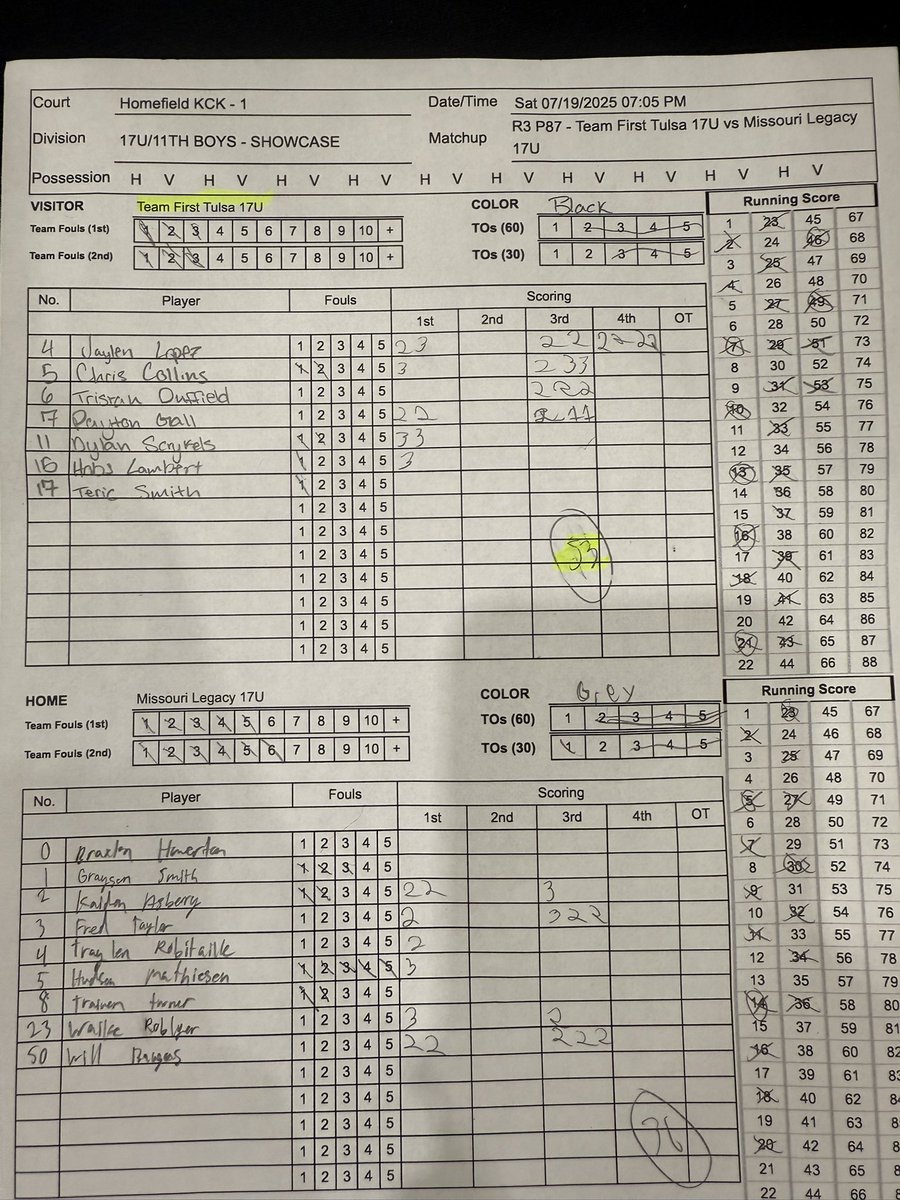 Court Homefield KCK - 1 Date/Time Sat 07/19/2025 07:05 PM
Division 17U/11TH BOYS - SHOWCASE Matchup R3 P87 - Team First Tulsa 17U vs Missouri Legacy
17U
Possession H V H V H V H V H V H V H V H V H V H V
VISITOR Team First Tulsa 17U COLOR Black Running Score
Team Fouls (1st) 1 2 3 4 5 6 7 8 9 10 + TOs (60) 1 2 3 4 5
Team Fouls (2nd) 1 2 3 4 5 6 7 8 9 10 + TOs (30) 1 2 3 4 5
1 23 45 67
2 24 46 68
3 25 47 69
4 26 48 70
5 27 49 71
6 28 50 72
7 29 51 73
8 30 52 74
9 31 53 75
10 32 54 76
11 33 55 77
12 34 56 78
13 35 57 79
14 36 58 80
15 37 59 81
16 38 60 82
17 39 61 83
18 40 62 84
19 41 63 85
20 42 64 86
21 43 65 87
22 44 66 88
No. Player Fouls Scoring
1st 2nd 3rd 4th OT
4 Jaylen Lopez 1 2 3 4 5 23 22
5 Chris Collins 1 2 3 4 5 3 233
6 Tristan Duffield 1 2 3 4 5 222
Payton Gall 1 2 3 4 5 22
11 Dylan 1 2 3 4 5 33
Lambert 1 2 3 4 5 3
17 Teric Smith 1 2 3 4 5
1 2 3 4 5
1 2 3 4 5
1 2 3 4 5
53
1 2 3 4 5
1 2 3 4 5
1 2 3 4 5
1 2 3 4 5
HOME Missouri Legacy 17U COLOR Grey Running Score
Team Fouls (1st) 1 2 3 4 5 6 7 8 9 10 + TOs (60) 1 2 3 4 5
Team Fouls (2nd) 1 2 3 4 5 6 7 8 9 10 + TOs (30) 1 2 3 4 5
1 23 45 67
2 24 46 68
3 25 47 69
4 26 48 70
5 27 49 71
6 28 50 72
7 29 51 73
8 30 52 74
9 31 53 75
10 32 54 76
11 33 55 77
12 34 56 78
13 35 57 79
14 36 58 80
15 37 59 81
16 38 60 82
17 39 61 83
18 40 62
19 41 63
20 42 64
21 43 65
22 44 66
No. Player Fouls Scoring
1st 2nd 3rd 4th OT
0 1 2 3 4 5
1 Grayson Smith 1 2 3 4 5
2 Kaiden Asberry 1 2 3 4 5 22 3
3 Fred Taylor 1 2 3 4 5 2 322
4 Traylen Robitaille 1 2 3 4 5 2
5 Hudson Mathiesen 1 2 3 4 5 3
8 1 2 3 4 5
23 1 2 3 4 5 3 2
50 Will 1 2 3 4 5 22 222
1 2 3 4 5
1 2 3 4 5
1 2 3 4 5
36
1 2 3 4 5
1 2 3 4 5